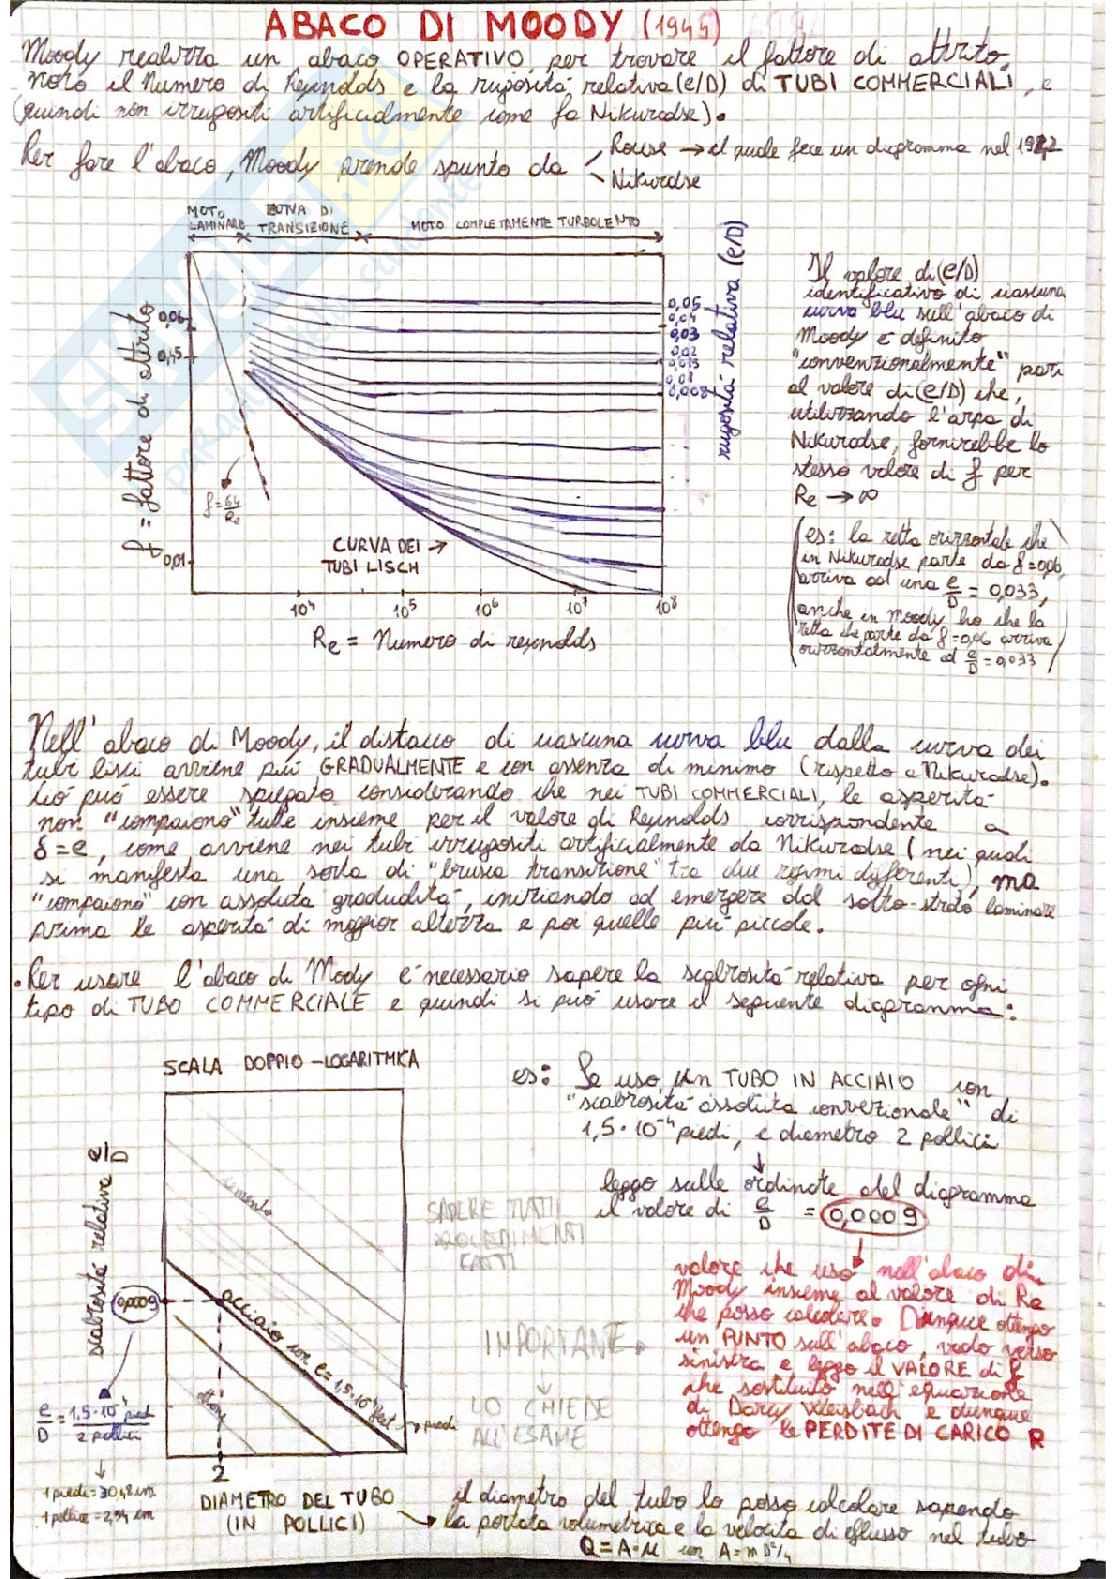 ABACO DI MOODY (1944)
Moody realizza un abaco OPERATIVO per trovare il fattore di attrito,
noto il Numero di Reynolds e la rugosità relativa (e/D) di TUBI COMMERCIALI, e
(quindi non irrugositi artificialmente come fa Nikuradse).
Per fare l'abaco, Moody prende spunto da
Rouse → il quale fece un diagramma nel 1942
Nikuradse
MOTO LAMINARE
ZONA DI TRANSIZIONE
MOTO COMPLETAMENTE TURBOLENTO
f = fattore di attrito
0,06
0,45
0,01
0,05
0,04
0,03
0,02
0,015
0,01
0,008
rugosità relativa (e/D)
f=64/Re
CURVA DEI →
TUBI LISCI
10⁴ 10⁵ 10⁶ 10⁷ 10⁸
Re = Numero di reynolds
Il valore di (e/D)
identificativo di ciascuna
curva blu sull'abaco di
Moody è definito
"convenzionalmente" pari
al valore di (e/D) che,
utilizzando l'arpa di
Nikuradse, fornirebbe lo
stesso valore di f per
Re → ∞
(es: la retta orizzontale che
in Nikuradse parte da f=0,06,
arriva ad una e/D = 0,033,
anche in Moody ho che la
retta che parte da f=0,06 arriva
orizzontalmente ad e/D = 0,033)
Nell'abaco di Moody, il distacco di ciascuna curva blu dalla curva dei
tubi lisci avviene più GRADUALMENTE e con assenza di minimo (rispetto a Nikuradse).
Ciò può essere spiegato considerando che nei TUBI COMMERCIALI, le asperità
non "compaiono" tutte insieme per il valore di Reynolds corrispondente a
δ=e, come avviene nei tubi irrugositi artificialmente da Nikuradse (nei quali
si manifesta una sorta di "brusca transizione" tra due regimi differenti), ma
"compaiono" con assoluta gradualità, iniziando ad emergere dal sotto-strato laminare
prima le asperità di maggior altezza e poi quelle più piccole.
• Per usare l'abaco di Mody è necessario sapere la scabrosità relativa per ogni
tipo di TUBO COMMERCIALE e quindi si può usare il seguente diagramma:
SCALA DOPPIO-LOGARITMICA
scabrosità relativa e/D
cemento
0,0009
acciaio con e=1,5·10⁻⁴ feet → piedi
ottone
e/D = 1,5·10⁻⁴ piedi / 2 pollici
1 piede = 30,48 cm
1 pollice = 2,54 cm
2
DIAMETRO DEL TUBO
(IN POLLICI)
es: Se uso un TUBO IN ACCIAIO con
"scabrosità assoluta convenzionale" di
1,5·10⁻⁴ piedi, e diametro 2 pollici
↓
leggo sulle ordinate del diagramma
il valore di e/D = 0,0009
SAPERE TUTTI
PROCEDIMENTI
FATTI
IMPORTANTE
LO CHIEDE
ALL'ESAME
valore che uso nell'abaco di
Moody insieme al valore di Re
che posso calcolare. Dunque ottengo
un PUNTO sull'abaco, vado verso
sinistra e leggo il VALORE di f
che sostituito nell'equazione
di Darcy Weisbach e dunque
ottengo le PERDITE DI CARICO R
il diametro del tubo lo posso calcolare sapendo
la portata volumetrica e la velocità di efflusso nel tubo
Q = A·u con A = π D²/4